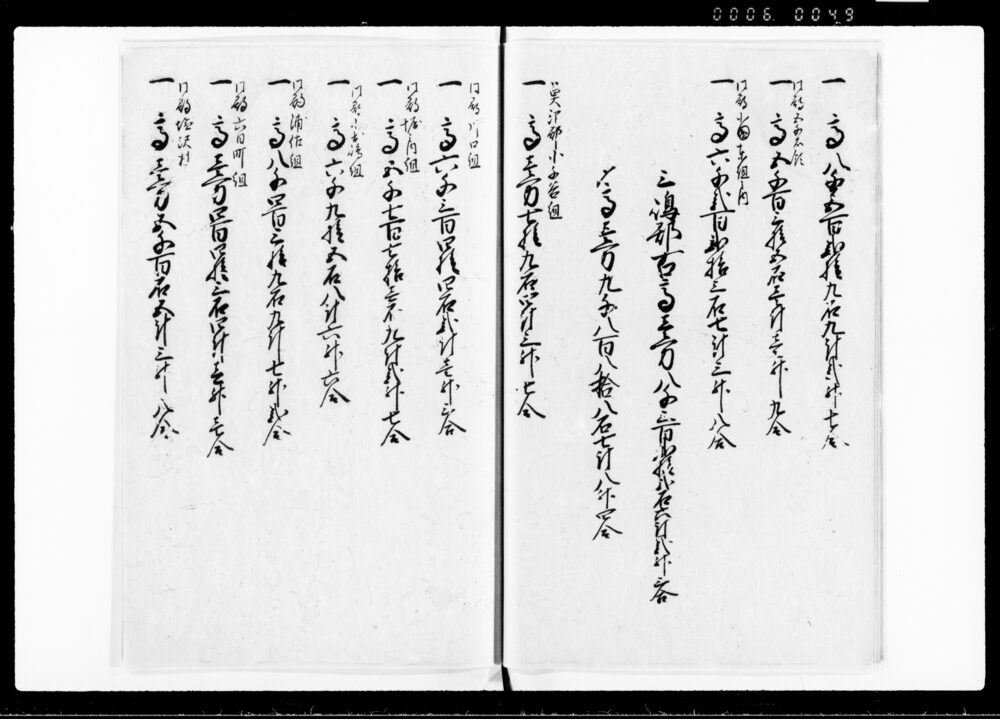 0006 0049
一 高八千五百弐拾九石九斗弐升七合
同郡五千石領
一 高五千百六拾五石三斗壱升九合
同郡小国東組之内
一 高六千弐百弐拾三石七斗三升八合
三嶋郡
高壱万八千三百弐拾弐石六斗弐升六合
高壱万九千八百八拾八石七斗八升四合
魚沼郡小千谷組
一 高壱万七拾九石四斗三升七合
同郡川口組
一 高六千三百四拾四石弐斗壱升六合
同郡堀之内組
一 高五千七百七拾六石九斗弐升七合
同郡小出嶋組
一 高六千九拾五石八斗六升六合
同郡浦佐組
一 高八千四百三拾九石九斗七升弐合
同郡六日町組
一 高壱万四百四拾三石四斗壱升壱合
同郡塩沢組
一 高壱万五千百石五斗三升八合